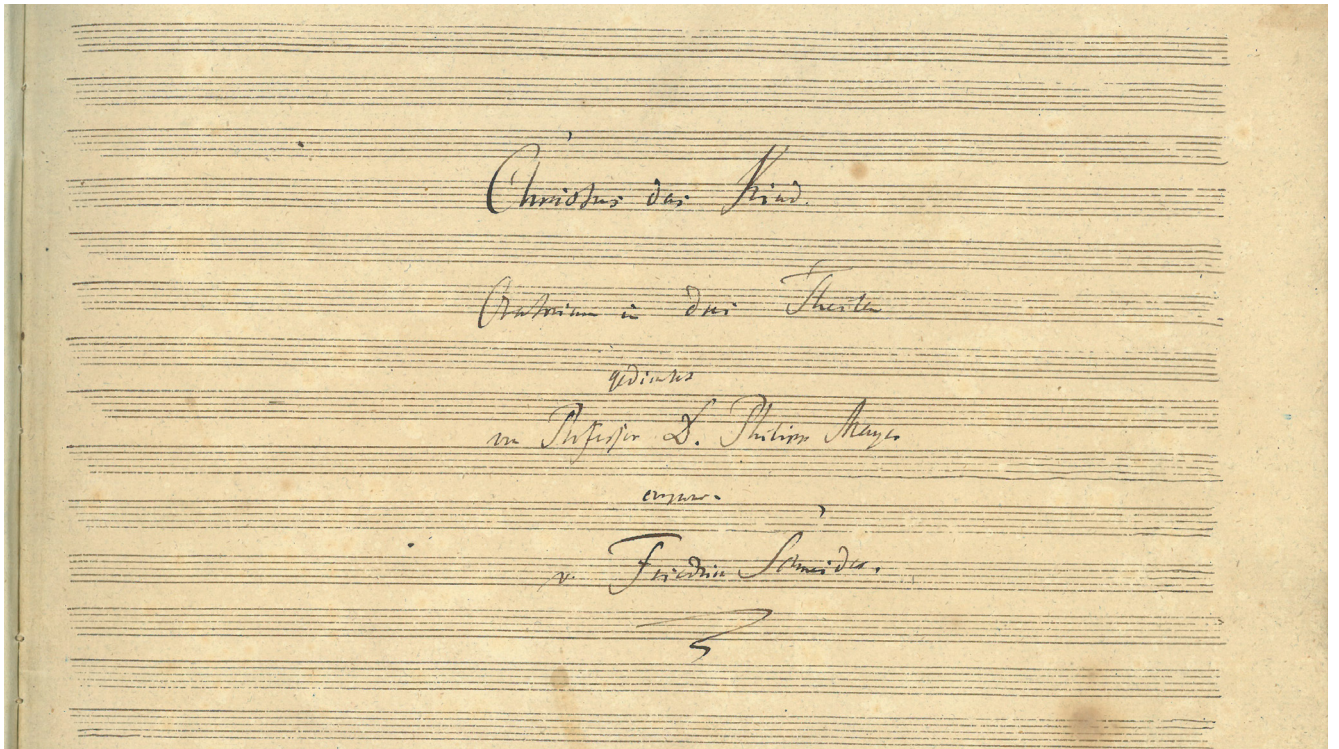 Christus das Kind.
Oratorium in drei Theilen
gedichtet
von Professor D. Philipp Mayer
compon.
v. Friedrich Schneider.